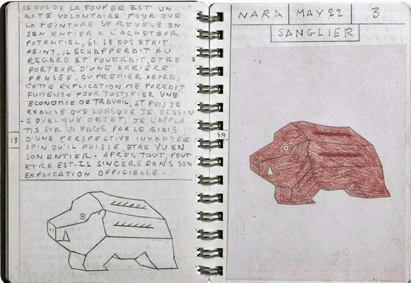 LE DOS DE LA POUPÉE EST UN
ACTE VOLONTAIRE POUR QUE
LA PEINTURE SE RÉVÈLE EN
SON ENTIER À L'ACHETEUR
POTENTIEL, SI LE DOS ÉTAIT
PEINT, IL ÉCHAPPERAIT AU
REGARD ET POURRAIT ÊTRE
PORTEUR D'UNE ARRIÈRE
PENSÉE. AU PREMIER ABORD,
CETTE EXPLICATION ME PARAÎT
FUMEUSE POUR JUSTIFIER UNE
ÉCONOMIE DE TRAVAIL, ET PUIS JE
RÉALISE QUE LORSQUE JE DESSINE
QUELQUE OBJET, JE L'APLA-
TIS SUR LA PAGE PAR LE BIAIS
D'UNE PERSPECTIVE INVENTÉE
AFIN QU'IL PUISSE ÊTRE VU EN
SON ENTIER. APRÈS TOUT, PEUT
ÊTRE EST-IL SINCÈRE DANS SON
EXPLICATION OFFICIELLE.
NARA MAY 22 3
SANGLIER